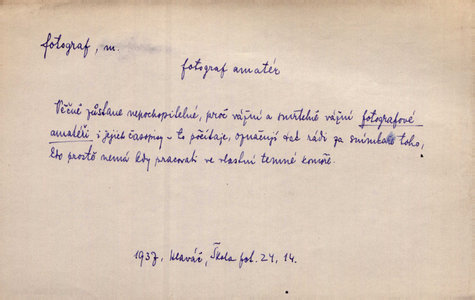 fotograf, m.
fotograf amatér
Věčně zůstane nepochopitelné, proč vážní a smrtelně vážní fotografové
amatéři i jejich časopisy – to počítaje, označují tak rádi za snímkaře toho,
kdo prostě nemá kdy pracovati ve vlastní temné komoře.
1937. Hlaváč, Škola fot. 24, 14.